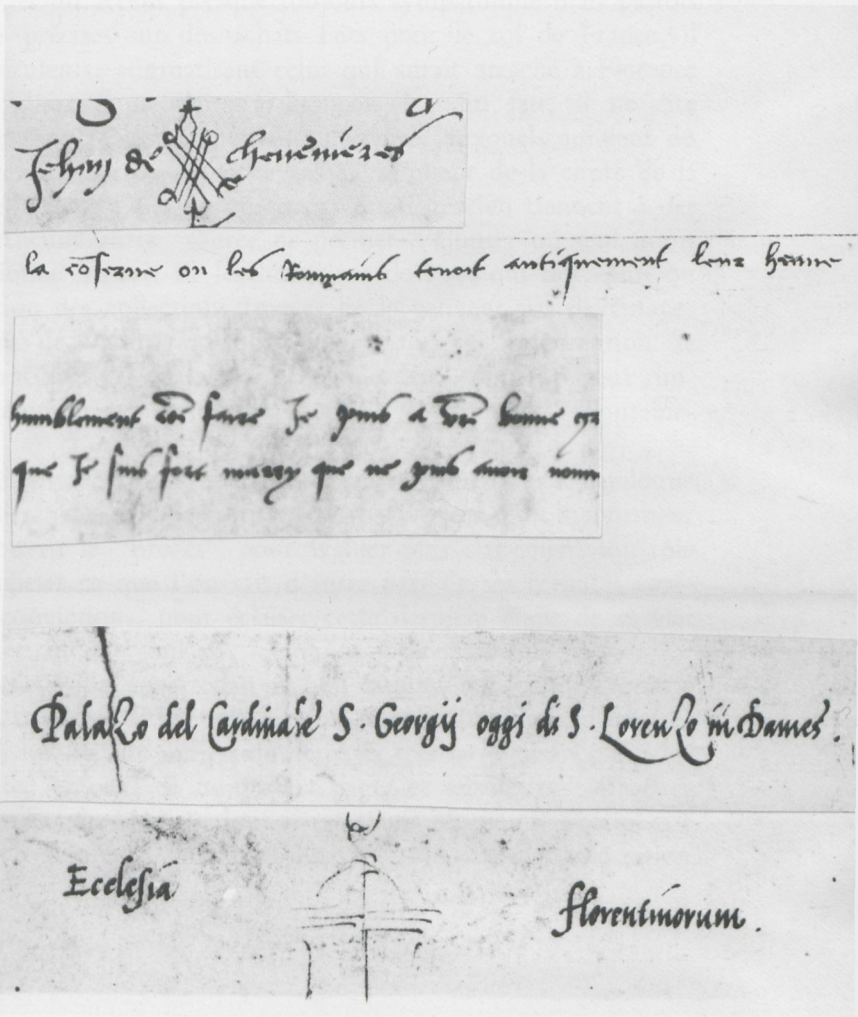 Jehan de chenevieres
la cõserne ou les Rommains tenoit antiquement leur henne
humblement vo͞s faire Je puis a vr͞e bonne gr
que Je suis fort marry que ne puis avoir nomm
Palazo del Cardinale S. Georgij oggi di S. Lorenzo in Dames.
Ecclesia florentinorum.